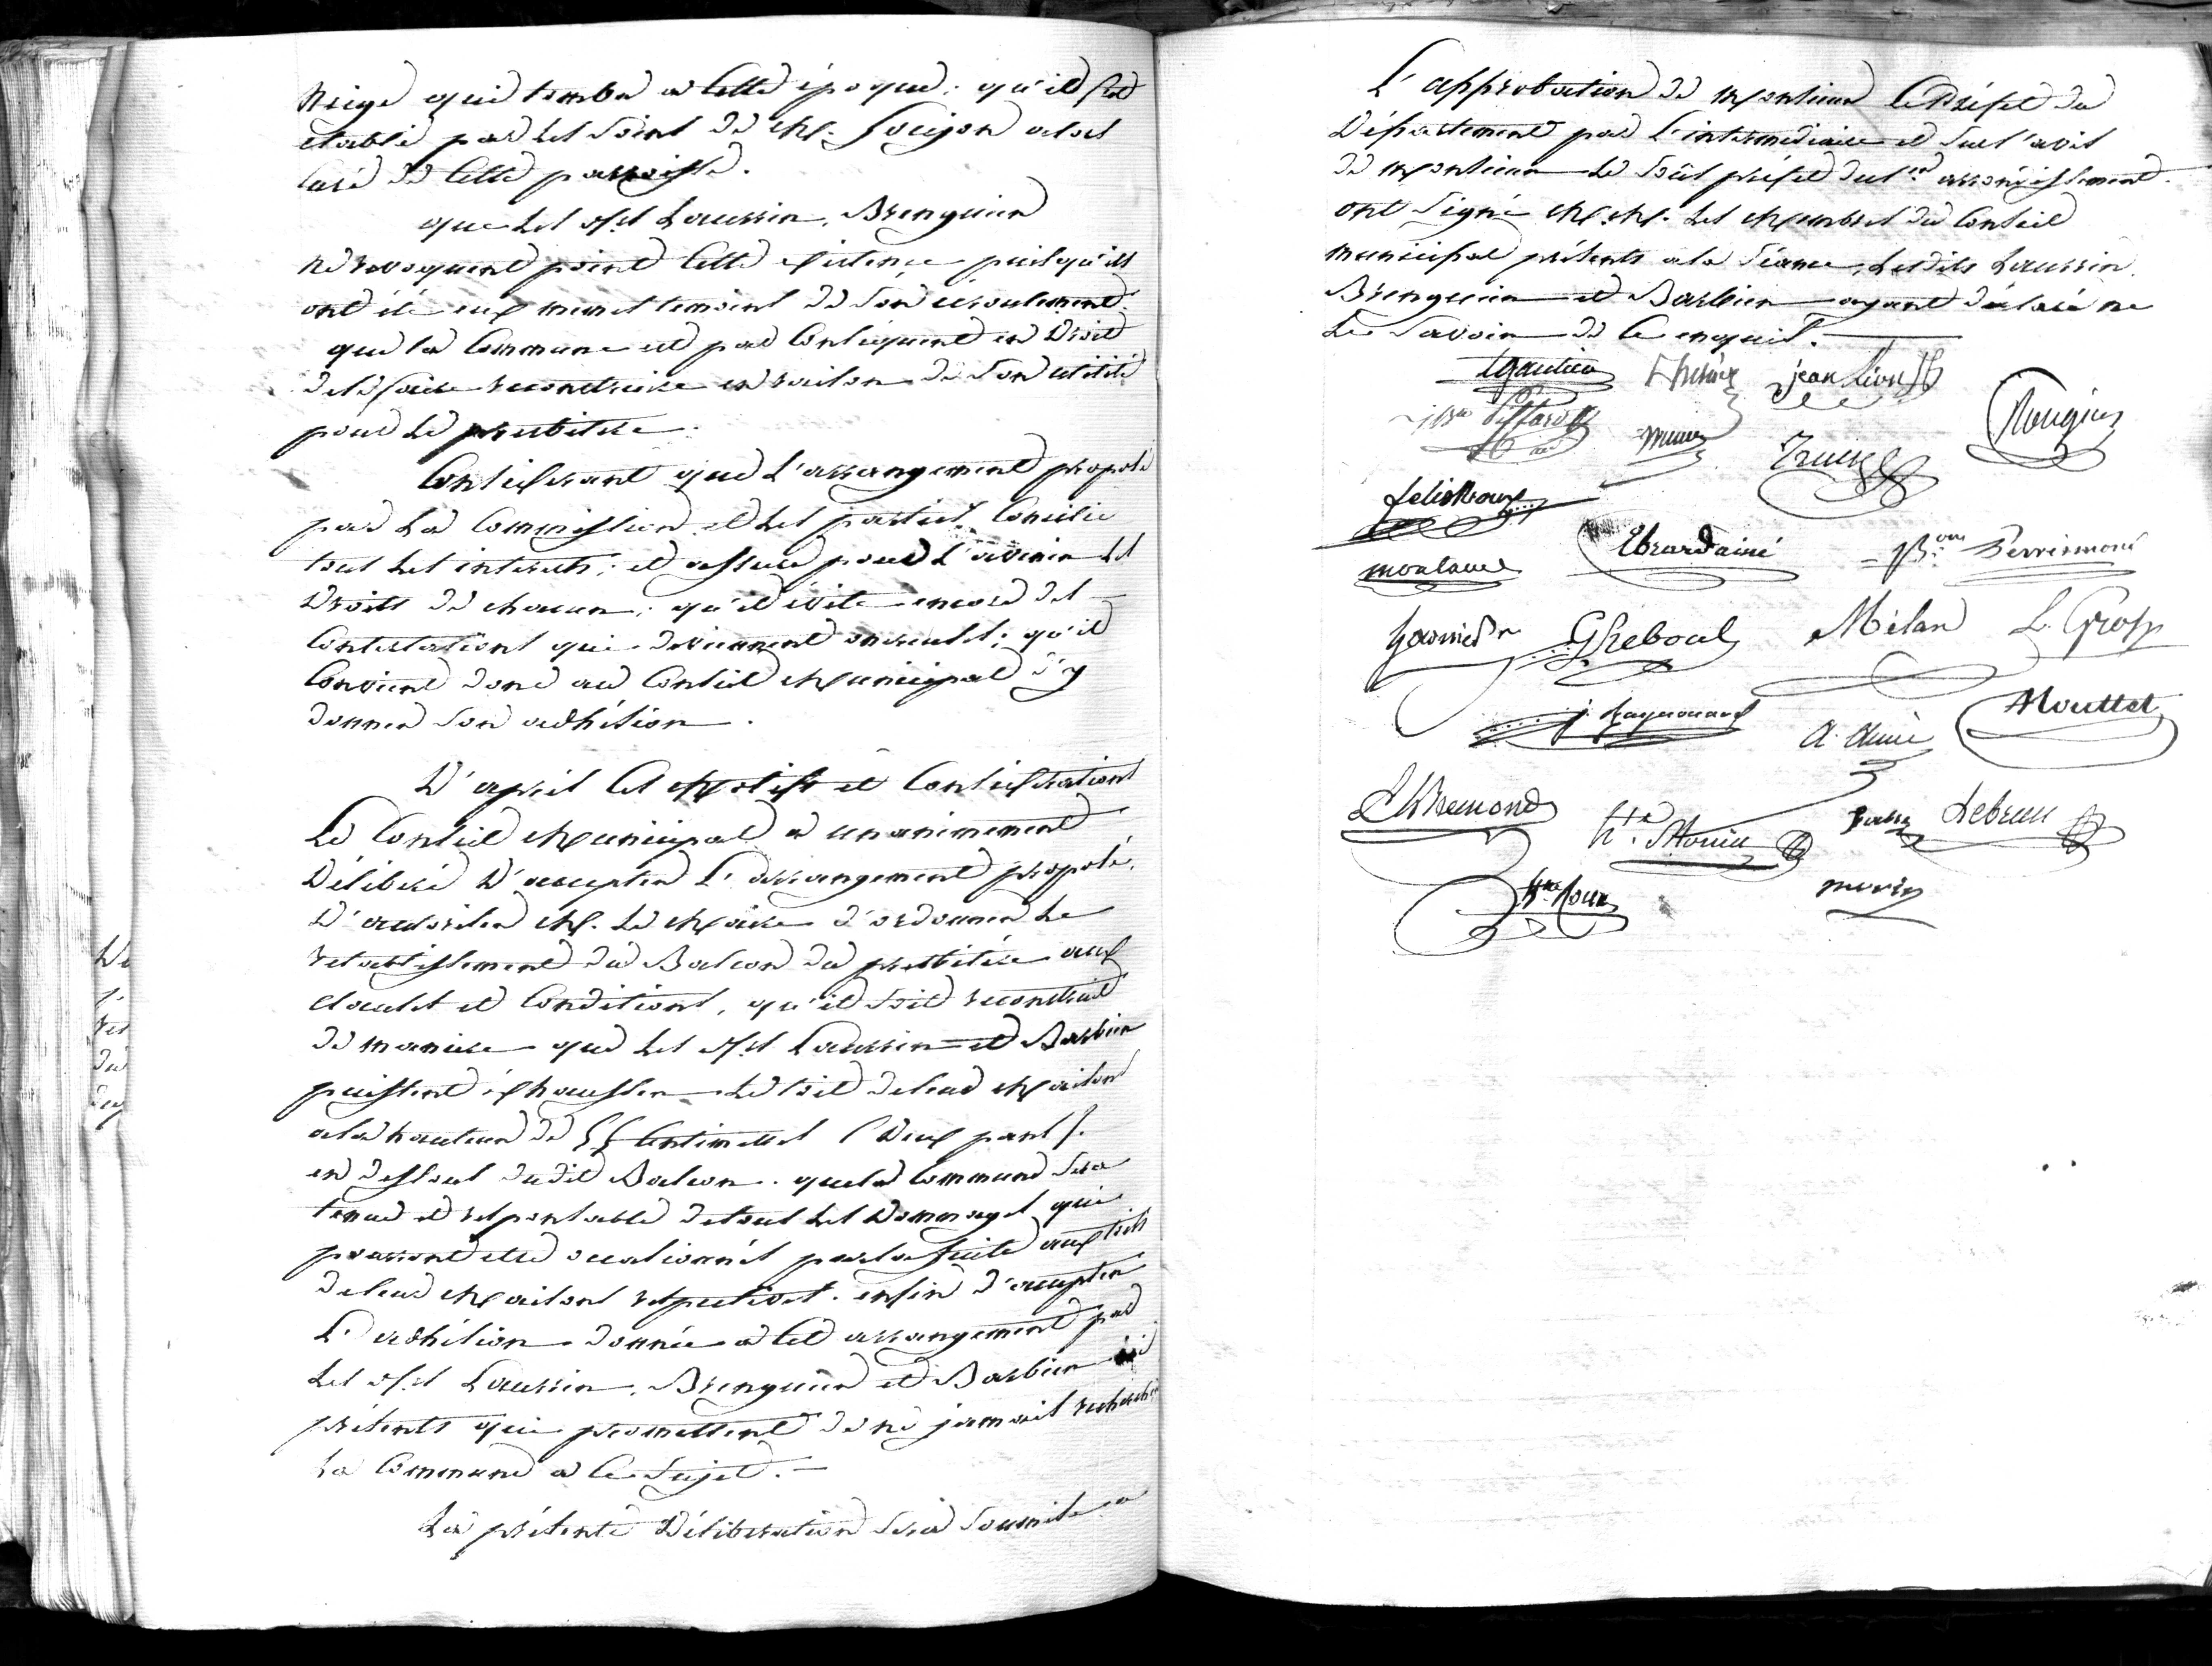 Neige qui tomba a cette époque; qu'il fut
etabli par les soins de M. Goujon alors
curé de cette paroisse.
que les Srs Laurrin, Brenguier
ne revoquent point cette existence puisqu'ils
ont été eux memes temoins de son écroulement.
que la Commune est par Conséquent en Droit
de le faire reconstruire en raison de son utilité
pour le presbitere.
Considerant que l'arrangement proposé
par la Commission et les parties Concilie
tous les interets; et assure pour l'avenir les
Droits de chacun; qu'il évite encore des
Contestations qui deviennent onereuses; qu'il
Convient donc au Conseil Municipal d'y
donner son adhésion.
D'après ces Motifs et Considerations
Le Conseil Municipal a unanimement
Délibéré D'accepter L'arrangement proposé,
D'autoriser M. le Maire d'ordonner le
retablissement du Balcon du presbitère aux
clauses et Conditions, qu'il soit reconstruit
de maniere que les Srs Laurrin et Barbier
puissent éxhausser le toit de leur Maison
a la hauteur de 55 Centimetres (Deux pans).
en dessous dudit Balcon. que la Commune sera
tenue et responsable de tous les Dommages qui
pourront etre occasionnés par la suite aux toits
de leurs Maisons respectives. enfin d'accepter
L'adhésion donnée a cet arrangement par
les Srs Laurrin, Brenguier et Barbier ici
présents qui promettent de ne jamais rechercher
la Commune a ce sujet.
La présente Délibération sera soumise a
L'approbation de Monsieur le Préfet du
Département par l'intermediaire et sur l'avis
de Monsieur le sous préfet du 1er arrondissement.
ont signé M.M. les Membres du Conseil
municipal présents a la séance, lesdits Laurrin,
Brenguier et Barbier ayant déclaré ne
le savoir de ce enquis.
Gautier jean Lions
Rougier
Truc
felix Roux
Ebrard ainé Perrimond
Garnier G Reboul Mélan L. Gros
j. Raynouard A. Aune Mouttet
Bremond Lebrun
Roux